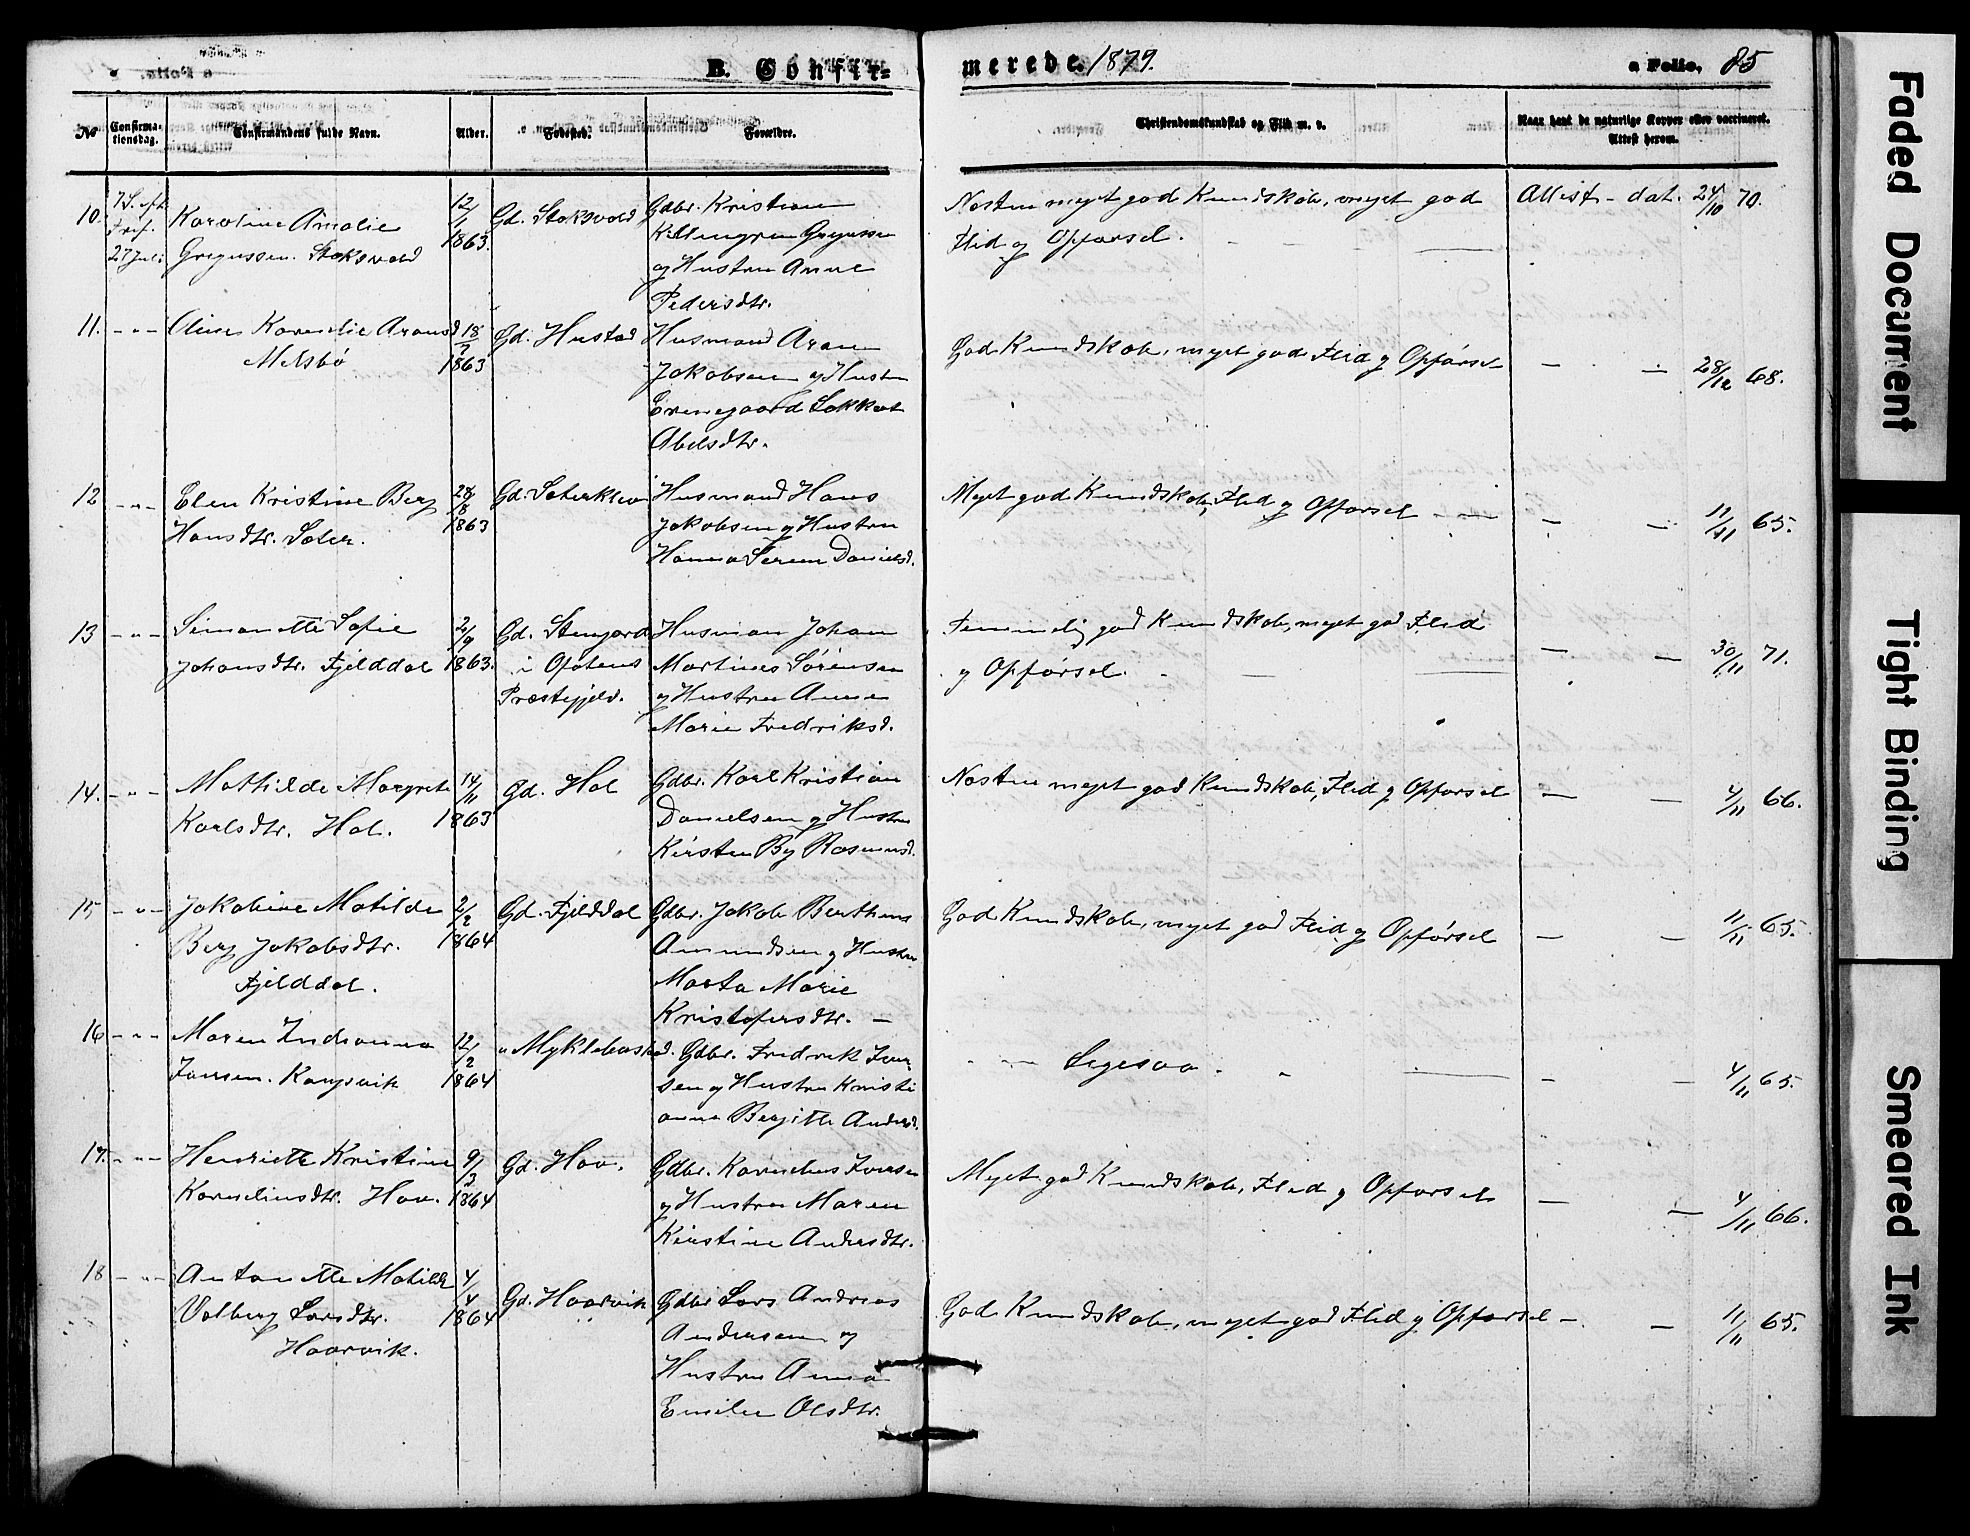 B. Confirmerede. 1879.
a Folio. 85
No
Confirmationsdag.
Confirmandens fulde Navn.
Alder.
Fødested.
Forældre.
Christendomskundskab og Flid m. v.
Naar havt de naturlige Kopper eller vaccineret.
Attest herom.
10. 7 S. eft. Tref. 27 Juli
Karoline Amalie
Gregussen. Stoksvold
12/1 1863.
Gd. Stoksvold
Gdbr. Kristian
Gregussen
og Hustru Anne
Pedersdtr.
Næsten meget god Kundskab, meget god
Flid og Opførsel.
Attest - dat. 24/10 70.
11. - " -
Karnelie Aronsd
Melsbö
18/7 1863
Gd. Hustad
Husmand Aron
Jakobsen og Hustru
Abelsdtr.
God Kundskab, meget god Flid og Opførsel
— — 28/12 68.
12 - " -
Elen Kristine Berg
Hansdtr. Sæter.
28/8 1863
Gd. Sæterkleiv
Husmand Hans
Jakobsen og Hustru
Hanna Seren Danielsd.
Meget god Kundskab, Flid og Opførsel - —
— — 11/11 65.
13 - " -
Simonette Sofie
Johansdtr. Fjelddal
2/9 1863.
Gd. Stenjord
i Ofotens
Præstegjeld.
Husman Johan
Martines Sörensen
og Hustru Anne
Marie Fredriksd.
Temmelig god Kundskab, meget god Flid
og Opførsel. — —
— — 30/11 71.
14. - " -
Mathilde Margrete
Karlsdtr. Hol.
14/11 1863
Gd. Hol
Gdbr. Karl Kristian
Danielsen og Hustru
Kirsten By Rasmusd.
Næsten meget god Kundskab, Flid og Opførsel
— — 4/11 66.
15 - " -
Jakobine Matilde
Berg Jakobsdtr.
Fjelddal.
2/2 1864
Gd. Fjelddal
Gdbr. Jakob Bertheus
Amundsen og Hustru
Marta Marie
Kristofersdtr. —
God Kundskab, meget god Flid og Opførsel
— — 11/11 65.
16 - " -
Maren Indianna
Iversen. Kongsvik
12/2 1864
" Myklebostad.
Gdbr. Fredrik Iversen
og Hustru Kristianna
Bergitte Andersd.
- — Ligesaa. " —
— — 4/11 65.
17. - " -
Henriette Kristine
Korneliusdtr. Hov.
9/3 1864
Gd. Hov.
Gdbr. Kornelius Iversen
og Hustru Maren
Kirstine Andersdtr.
Meget god Kundskab, Flid og Opførsel
— — 4/11 66.
18 - " -
Antonette Matilde
Valberg Larsdtr.
Haarvik.
4/4 1864
Gd. Haarvik
Gdbr Lars Andreas
Andersen og
Hustru Anna
Emilie Olsdtr.
God Kundskab, meget god Flid og Opførsel
— — 11/11 65.
Faded Document
Tight Binding
Smeared Ink